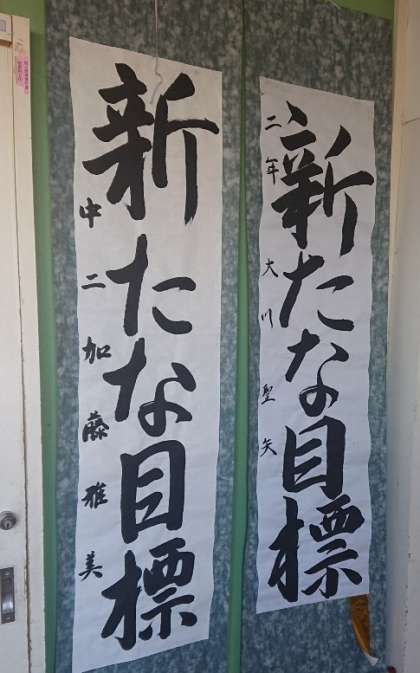 新たな目標
二年大川聖矢
新たな目標
中二加藤雅美